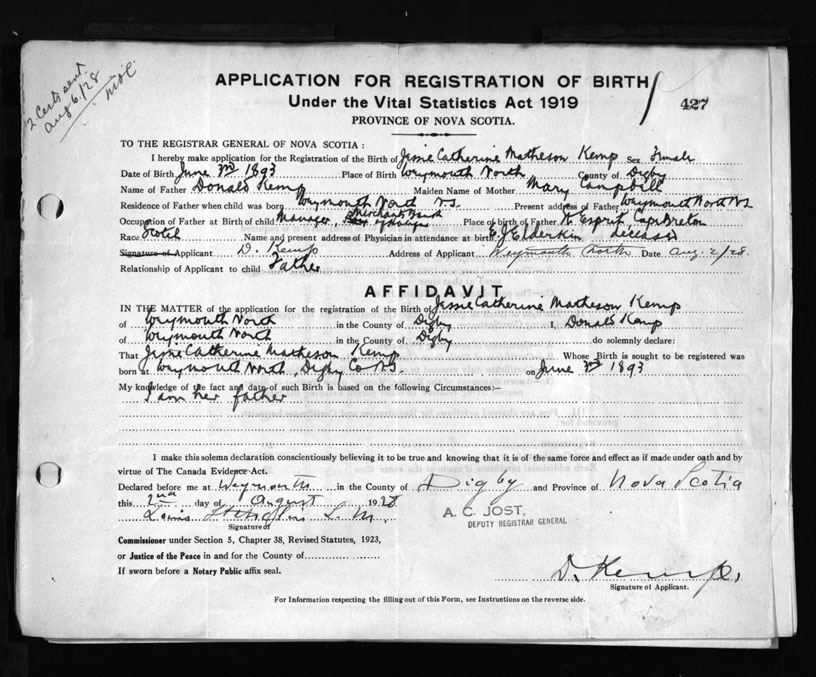 2 Certs sent
Aug 6/28
APPLICATION FOR REGISTRATION OF BIRTH
Under the Vital Statistics Act 1919
427
PROVINCE OF NOVA SCOTIA.
TO THE REGISTRAR GENERAL OF NOVA SCOTIA :
I hereby make application for the Registration of the Birth of Jessie Catherine Matheson Kemp Sex Female
Date of Birth June 3rd 1893 Place of Birth Weymouth North County of Digby
Name of Father Donald Kemp Maiden Name of Mother Mary Campbell
Residence of Father when child was born Weymouth North N.S. Present address of Father Weymouth North N.S.
Occupation of Father at Birth of child Manager, Merchants Bank of Halifax Place of birth of Father Esprit, Cape Breton
Race Scotch Name and present address of Physician in attendance at birth E J Elderkin deceased
Signature of Applicant D. Kemp Address of Applicant Weymouth North Date Aug. 2/28.
Relationship of Applicant to child Father
AFFIDAVIT
IN THE MATTER of the application for the registration of the Birth of Jessie Catherine Matheson Kemp
of Weymouth North in the County of Digby I, Donald Kemp
of Weymouth North in the County of Digby do solemnly declare:
That Jessie Catherine Matheson Kemp Whose Birth is sought to be registered was
born at Weymouth North, Digby Co N.S. on June 3rd 1893
My knowledge of the fact and date of such Birth is based on the following Circumstances:—
I am her father
I make this solemn declaration conscientiously believing it to be true and knowing that it is of the same force and effect as if made under oath and by
virtue of The Canada Evidence Act.
Declared before me at Weymouth in the County of Digby and Province of Nova Scotia
this 2nd day of August 1928
Louis J. M.
A. C. JOST,
DEPUTY REGISTRAR GENERAL
Signature of
Commissioner under Section 5, Chapter 38, Revised Statutes, 1923,
or Justice of the Peace in and for the County of
If sworn before a Notary Public affix seal.
D. Kemp.
Signature of Applicant.
For Information respecting the filling out of this Form, see Instructions on the reverse side.